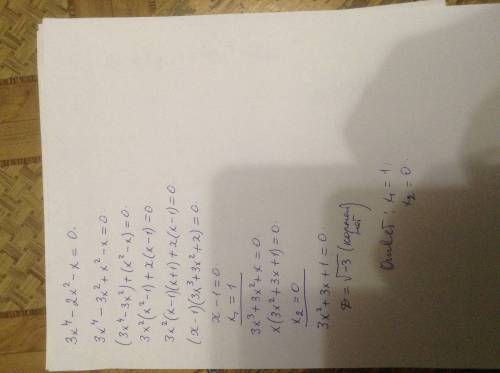 3x⁴ - 2x² - x = 0.
3x⁴ - 3x² + x² - x = 0
(3x⁴ - 3x²) + (x² - x) = 0.
3x²(x² - 1) + x(x - 1) = 0
3x²(x - 1)(x + 1) + x(x - 1) = 0.
(x - 1)(3x³ + 3x² + x) = 0.
x - 1 = 0
x₁ = 1
3x³ + 3x² + x = 0.
x(3x² + 3x + 1) = 0
x₂ = 0
3x² + 3x + 1 = 0
D = √-3 (корней нет)
Ответ: x₁ = 1.
x₂ = 0.